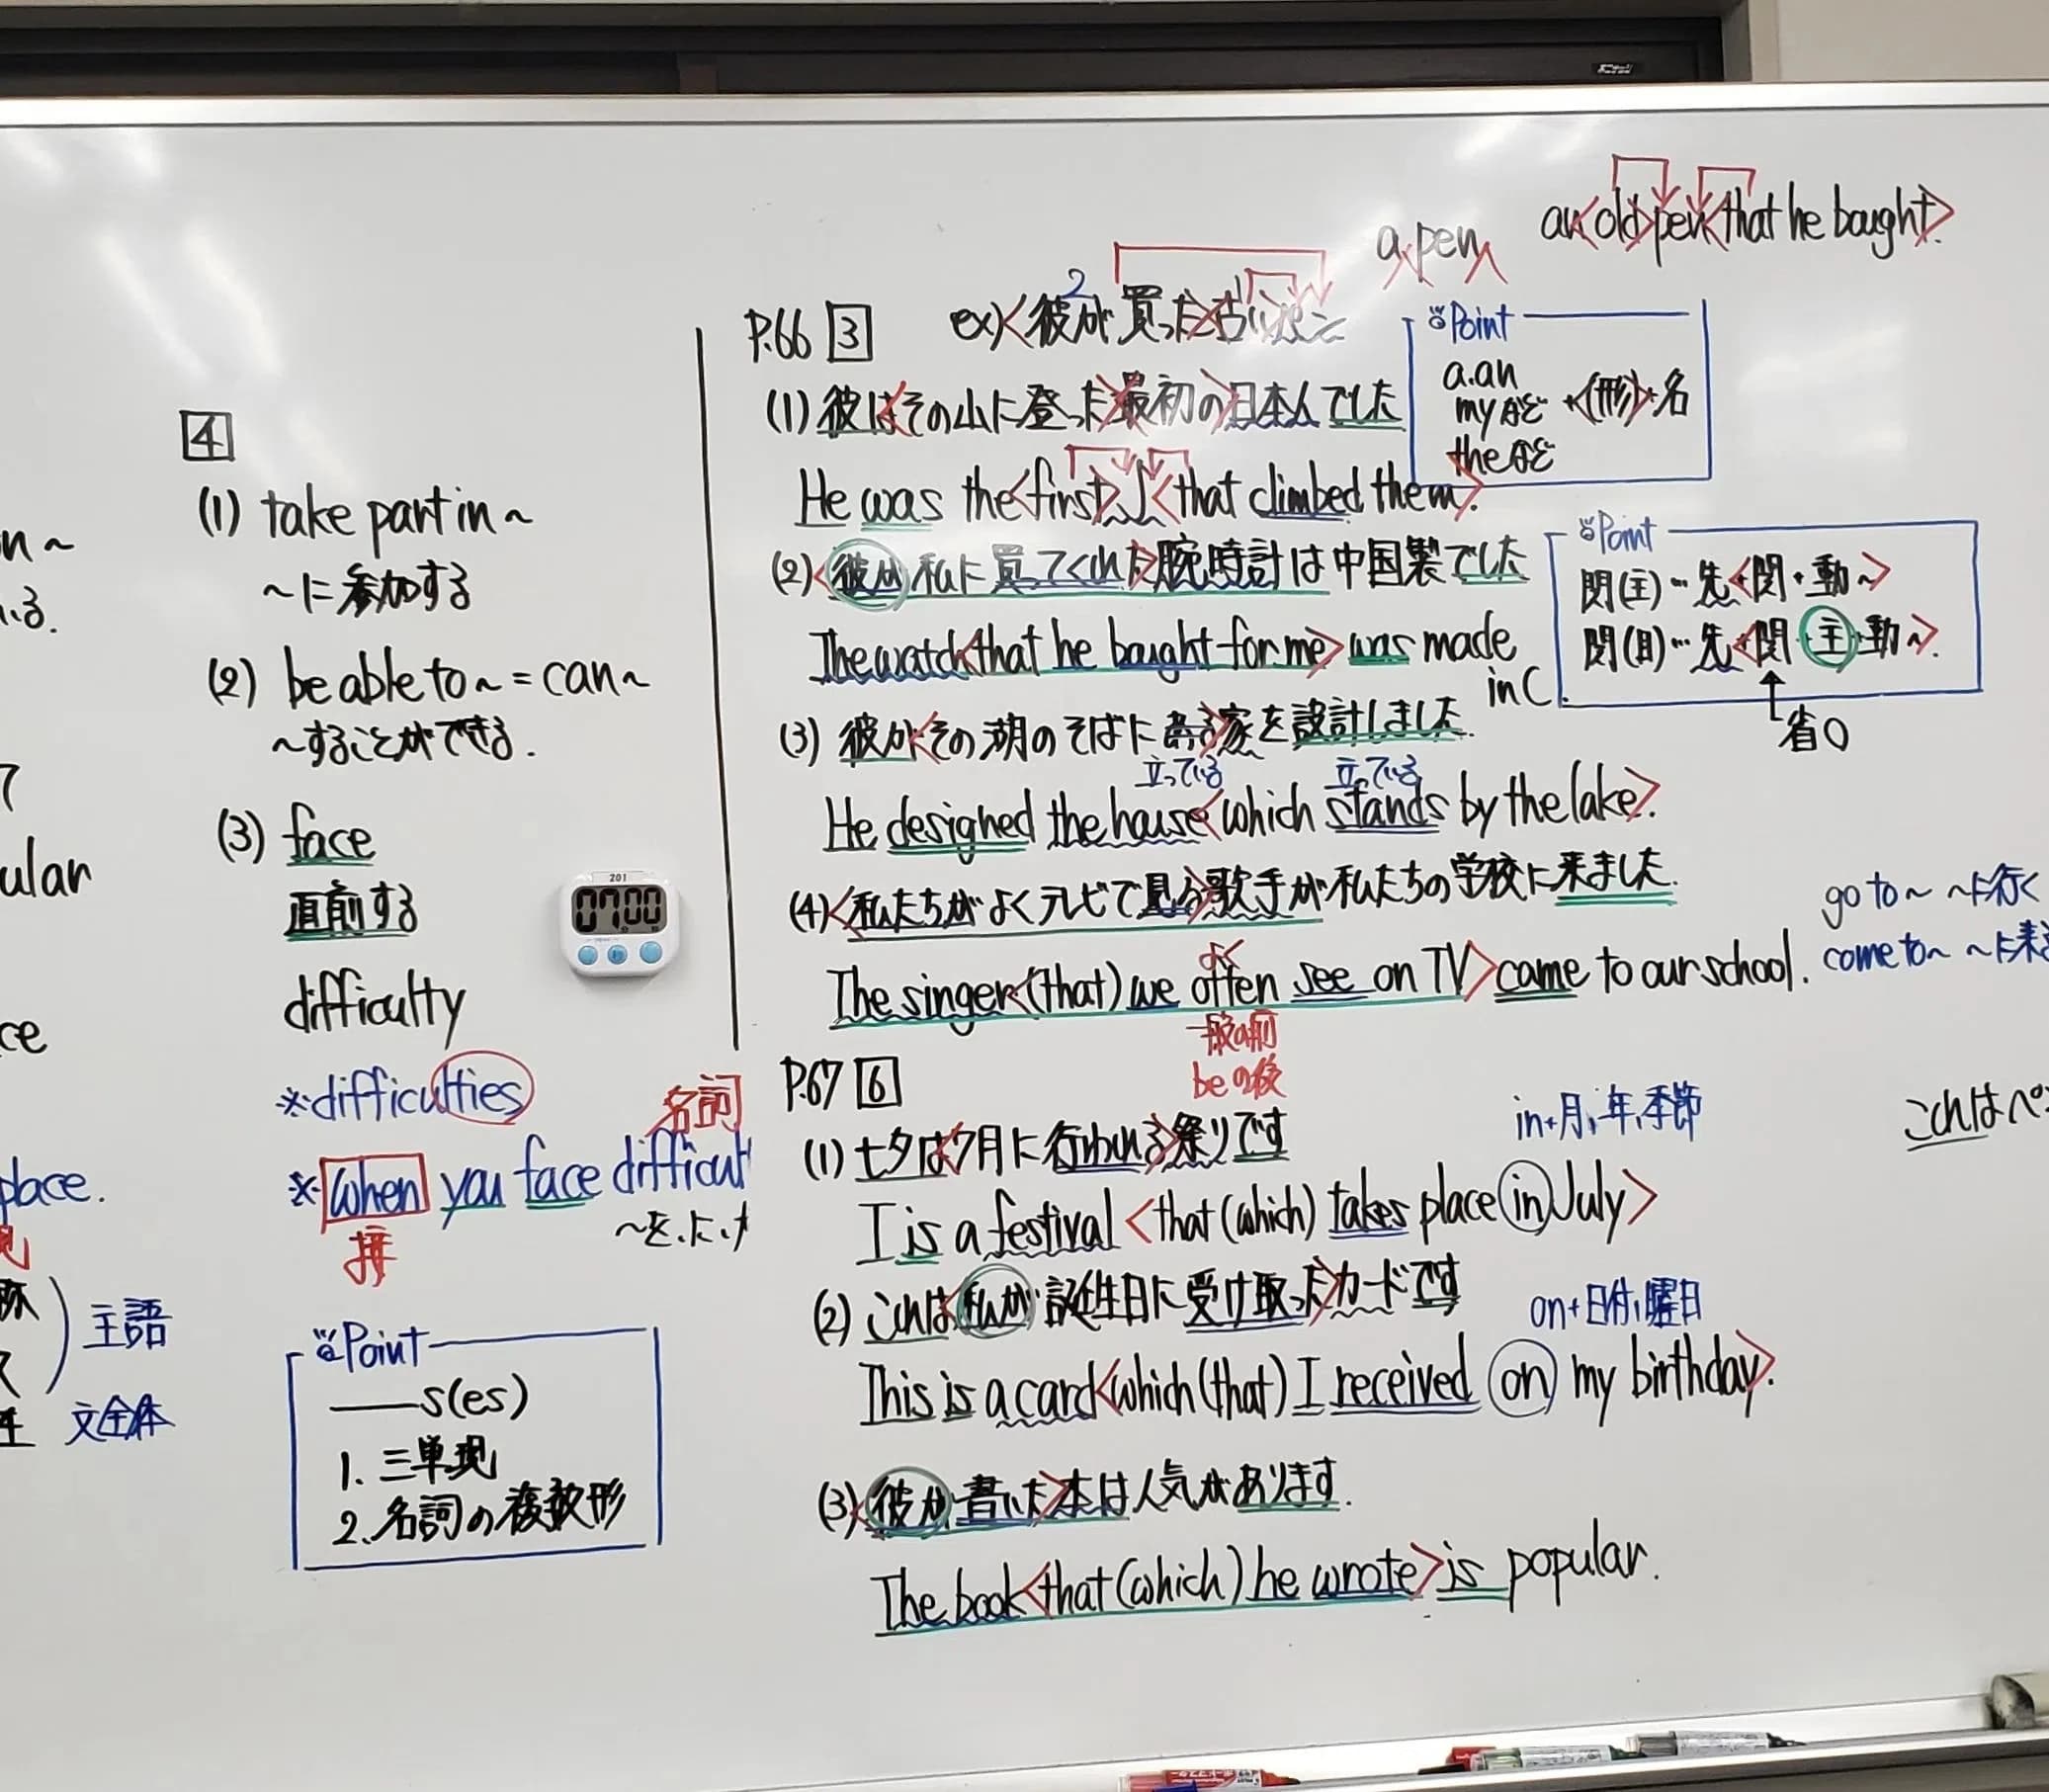 n~
いる.
7
ular
ce
place.
主語
文全体
4
(1) take part in ~
~に参加する
(2) be able to ~ = can ~
~することができる.
(3) face
直前する
difficulty
※difficulties
名詞
※When you face difficult
接
~を.に.が
Point
——s(es)
1. 三単現
2. 名詞の複数形
201
0700
an<old>pen<that he bought>.
a pen
P.66 3 ex)<彼が買った><古い>ペン
2 1
Point
a.an
myなど +<形>+名
theなど
(1) 彼は<その山に登った><最初の>日本人でした
He was the<first>J<that climbed the m>.
(2)<彼が私に買ってくれた>腕時計は中国製でした
The watch<that he bought for me>was made
in C.
Point
関(主)…先<関・動~>
関(目)…先<関・主・動~>.
省O
(3) 彼が<その湖のそばにある>家を設計しました.
立っている 立っている
He designed the house<which stands by the lake>.
(4)<私たちがよくテレビで見る>歌手が私たちの学校に来ました.
よく
The singer<(that) we often see on TV>came to our school.
一般の前
beの後
go to~ ~に行く
come to~ ~に来る
P.67 6
(1) 七夕は<7月に行われる>祭りです
in+月,年,季節
I is a festival <that (which) takes place in July>
(2) これは<私が誕生日に受け取った>カードです
on+日付,曜日
This is a card<which (that) I received on my birthday>.
(3)<彼が書いた>本は人気があります.
The book<that (which) he wrote>is popular.
これはペ